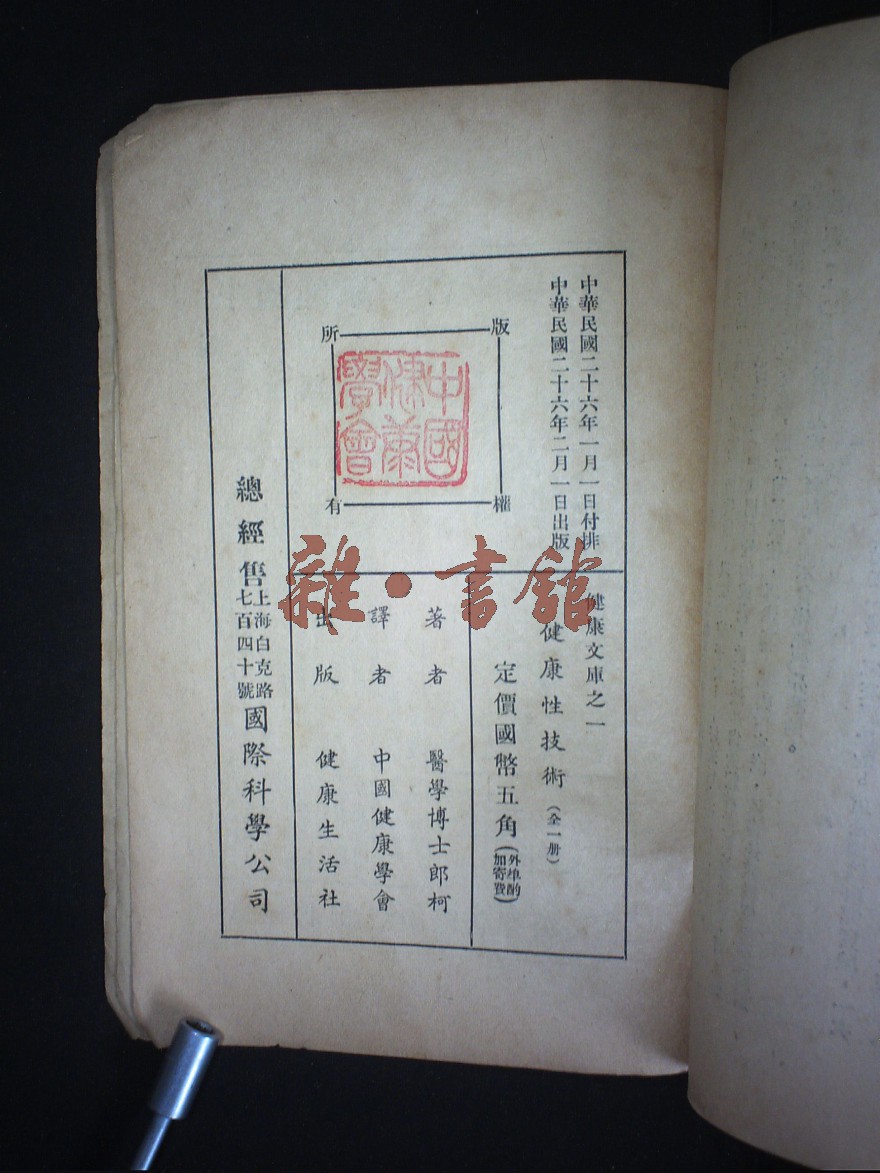 中華民國二十六年一月一日付排
中華民國二十六年二月一日出版
版權所有
中國健康學會
健康文庫之一
健康性技術(全一册)
定價國幣五角(外埠酌加寄費)
著者 醫學博士郎柯
譯者 中國健康學會
出版 健康生活社
總經售 上海白克路七百四十號 國際科學公司
雜·書館